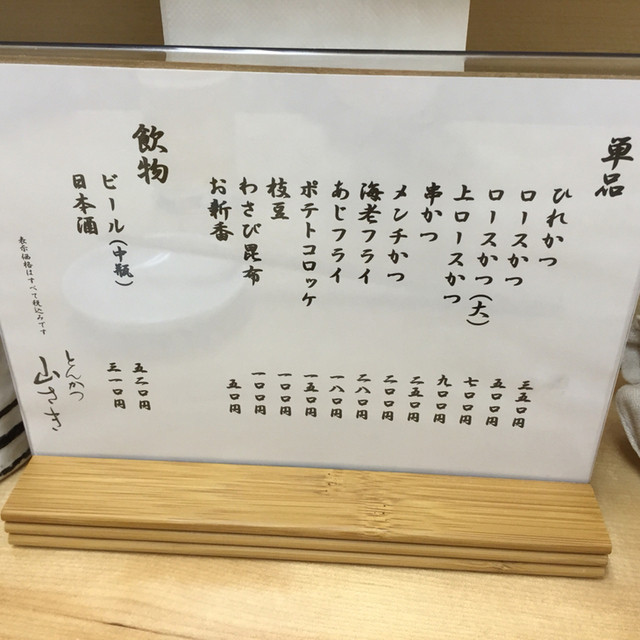 単品
ひれかつ 三五〇円
ロースかつ 五〇〇円
ロースかつ(大) 七〇〇円
上ロースかつ 九〇〇円
串かつ 二五〇円
メンチかつ 二〇〇円
海老フライ 二八〇円
あじフライ 一八〇円
ポテトコロッケ 一五〇円
枝豆 一〇〇円
わさび昆布 一〇〇円
お新香 五〇円
飲物
ビール(中瓶) 五二〇円
日本酒 三一〇円
とんかつ
山さき
表示価格はすべて税込みです